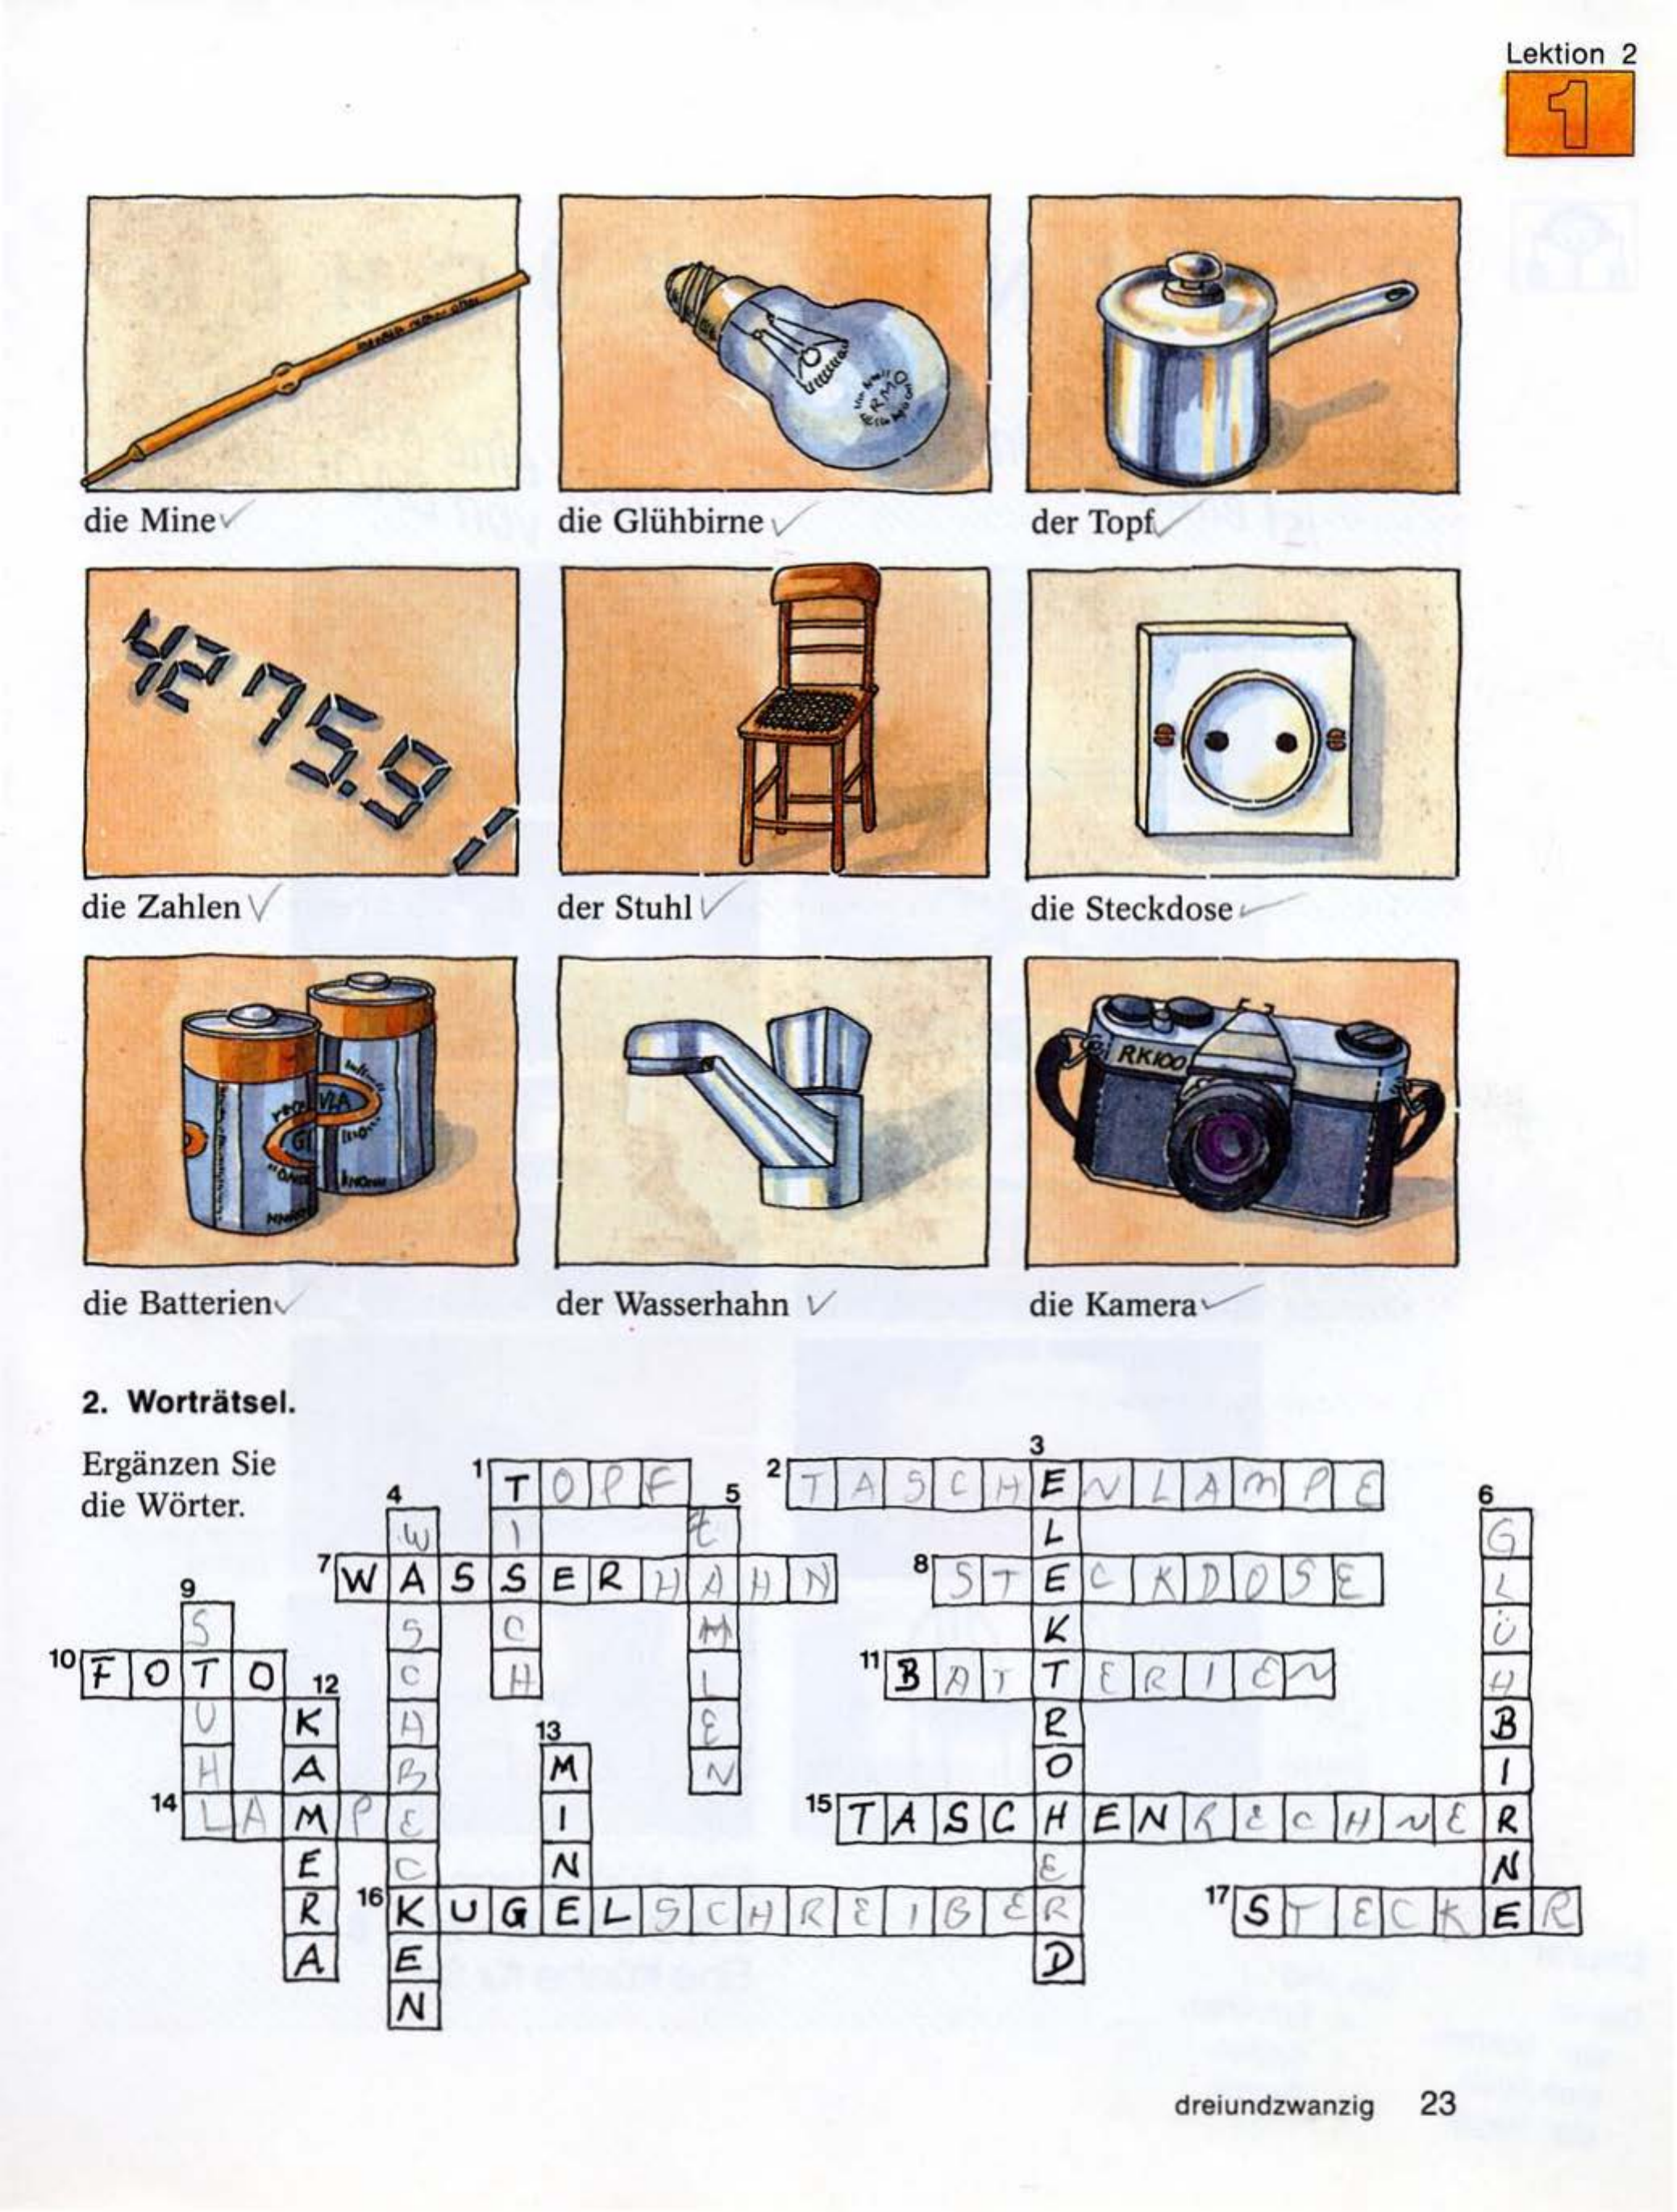 Lektion 2
1
RMO
die Mine ✓
die Glühbirne ✓
der Topf ✓
4275.91
die Zahlen ✓
der Stuhl ✓
die Steckdose ✓
RK100
die Batterien ✓
der Wasserhahn ✓
die Kamera ✓
2. Worträtsel.
Ergänzen Sie
die Wörter.
1 TOPF
TISCH
2 TASCHENLAMPE
3 ELEKTROHERD
4 WASCHBECKEN
5 ZAHLEN
6 GLÜHBIRNE
7 WASSERHAHN
8 STECKDOSE
9 STUHL
10 FOTO
11 BATTERIEN
12 KAMERA
13 MINE
14 LAMPE
15 TASCHENRECHNER
16 KUGELSCHREIBER
17 STECKER
dreiundzwanzig 23